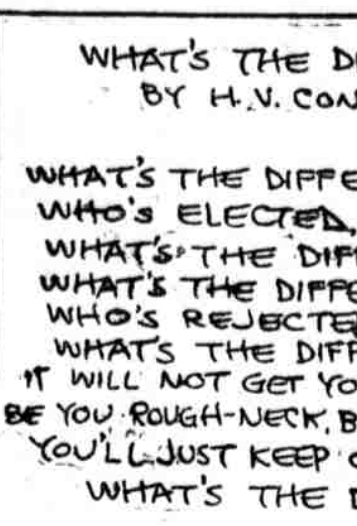 WHAT'S THE D
BY H.V. CON
WHAT'S THE DIFFE
WHO'S ELECTED,
WHAT'S THE DIFF
WHAT'S THE DIFFE
WHO'S REJECTE
WHAT'S THE DIFF
IT WILL NOT GET YO
BE YOU ROUGH-NECK, B
YOU'LL JUST KEEP
WHAT'S THE D